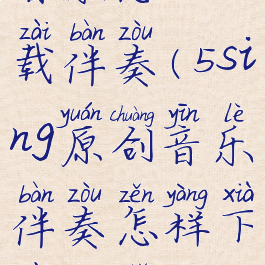 zài bàn zòu
载伴奏(5si
yuán chuàng yīn lè
ng原创音乐
bàn zòu zěn yàng xià
伴奏怎样下